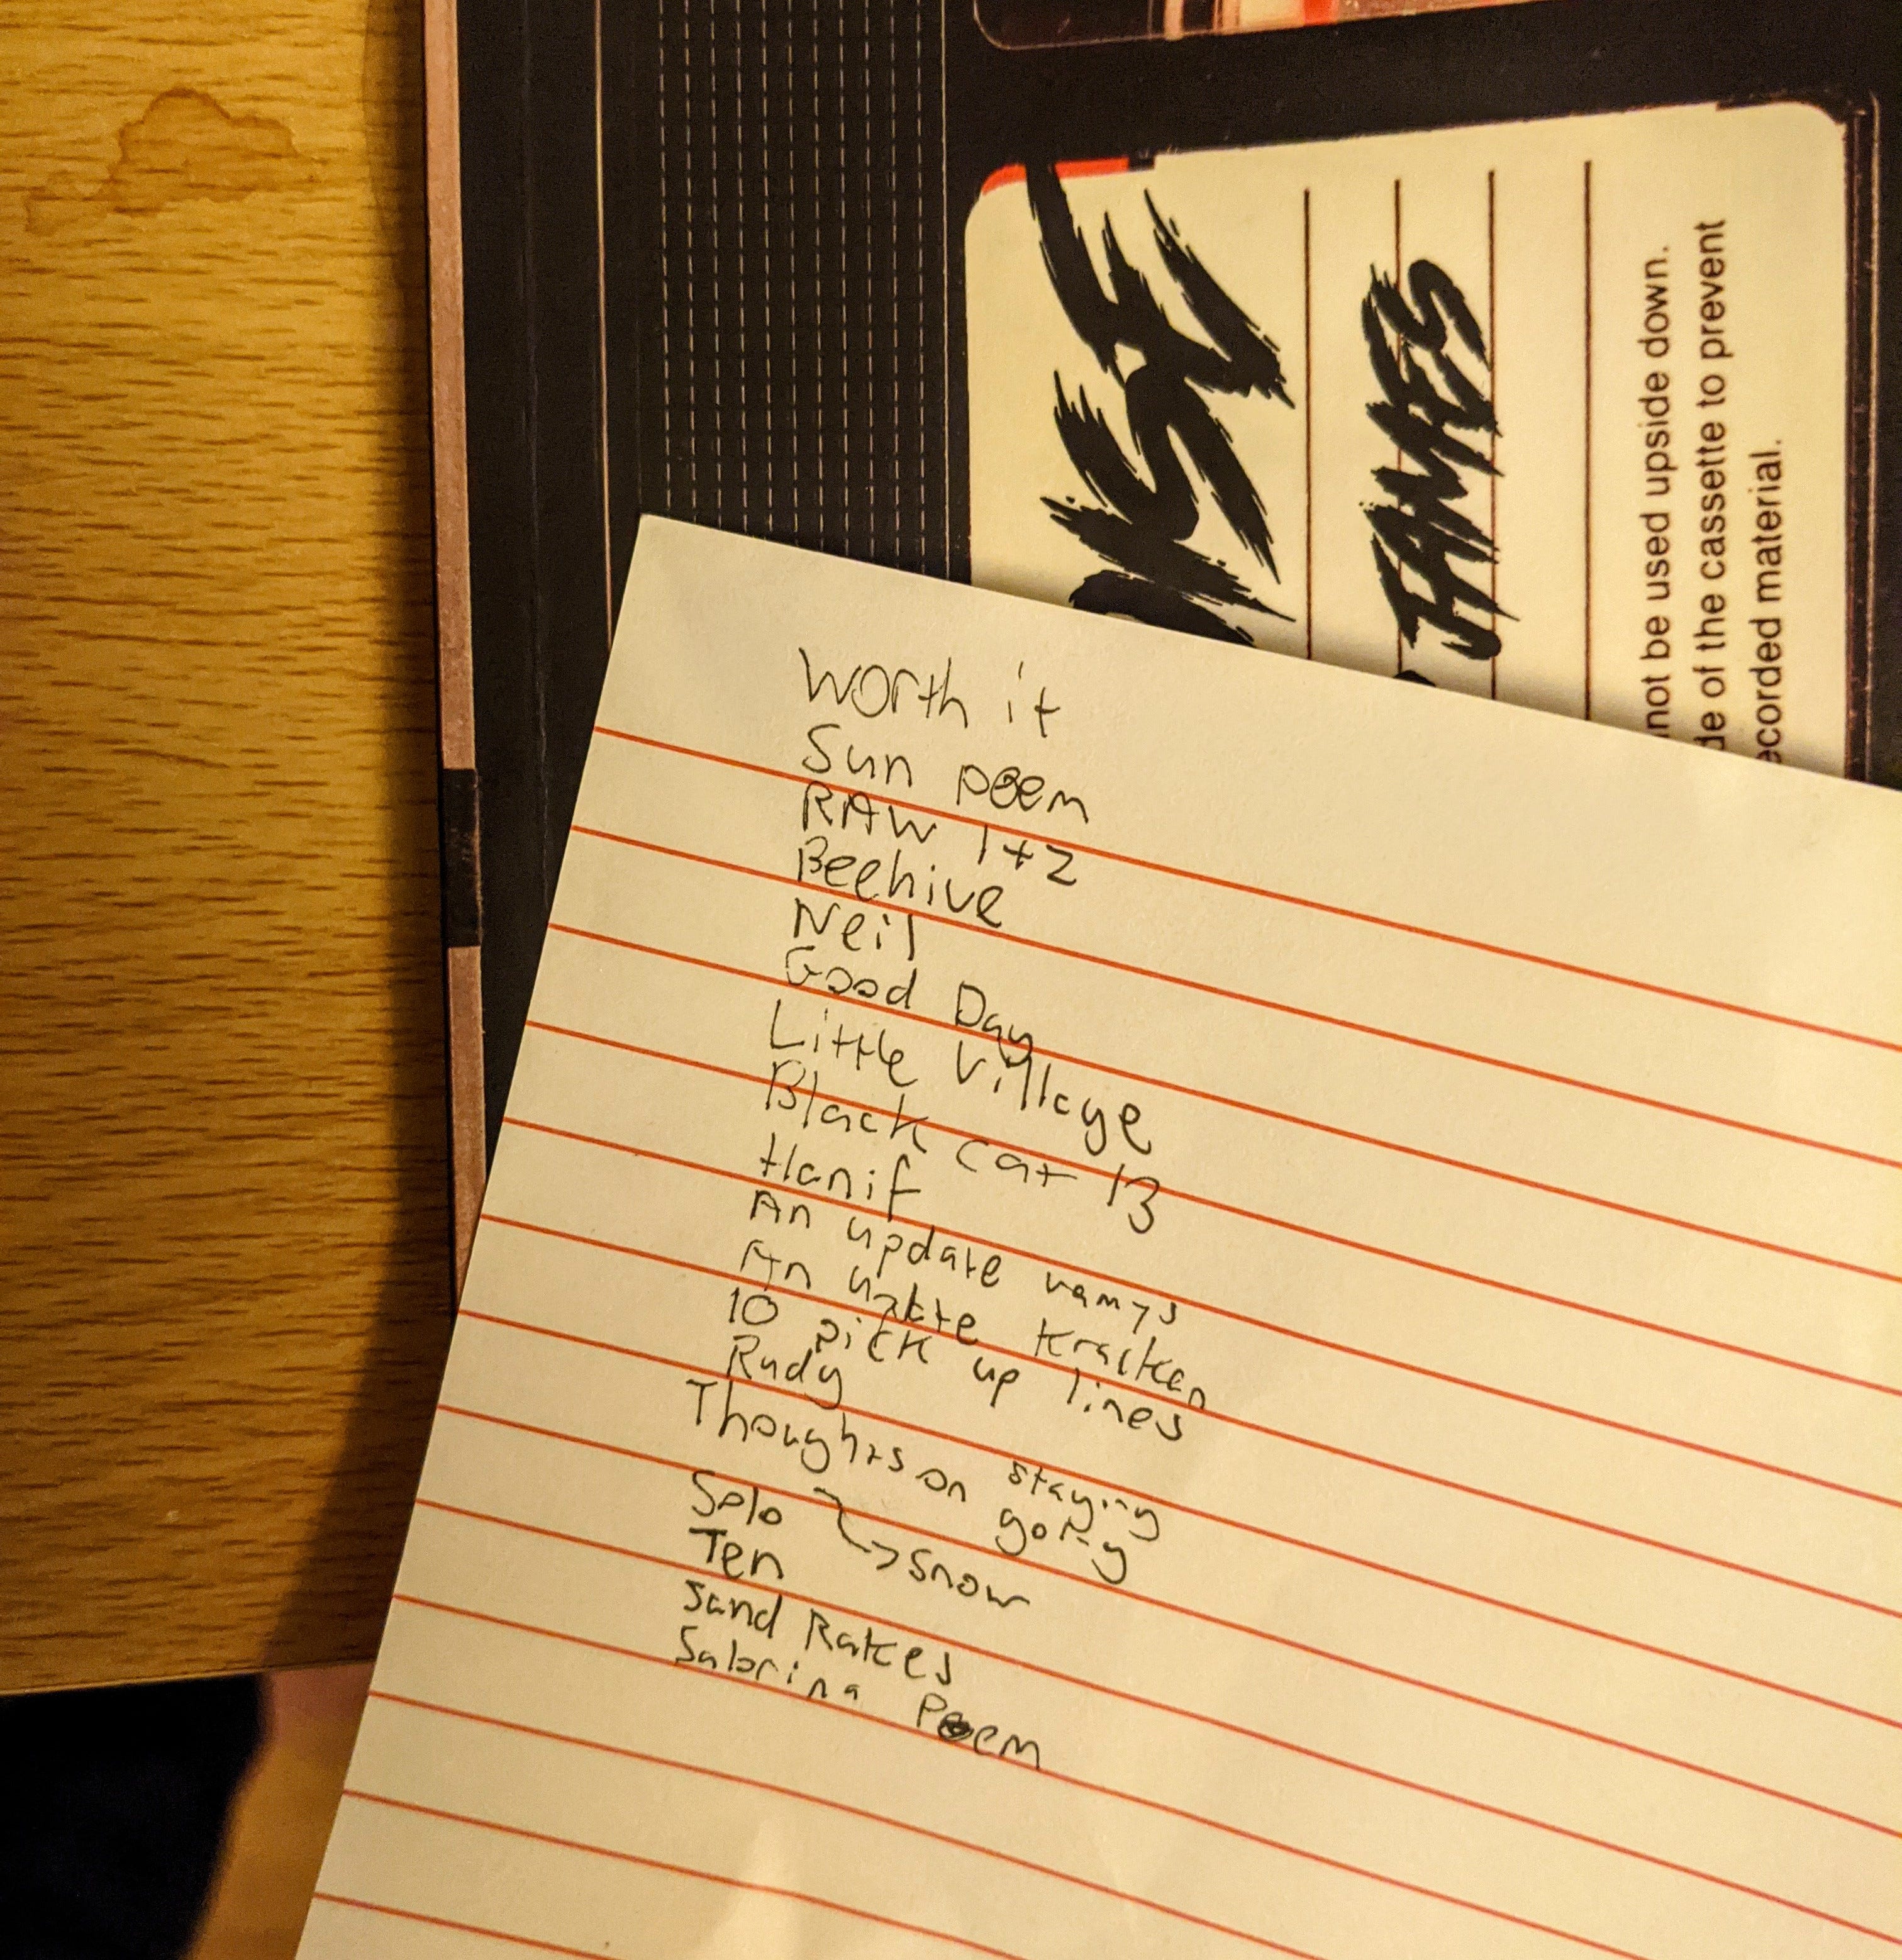 JAMES
not be used upside down.
de of the cassette to prevent
ecorded material.
Worth it
Sun poem
RAW 1+2
Beehive
Neil
Good Day
Little Village
Black cat 13
Hanif
An update vamps
An update Kraken
10 pick up lines
Rudy
Thoughts on staying
going
Solo → snow
Ten
Sand Rakes
Sabrina Poem